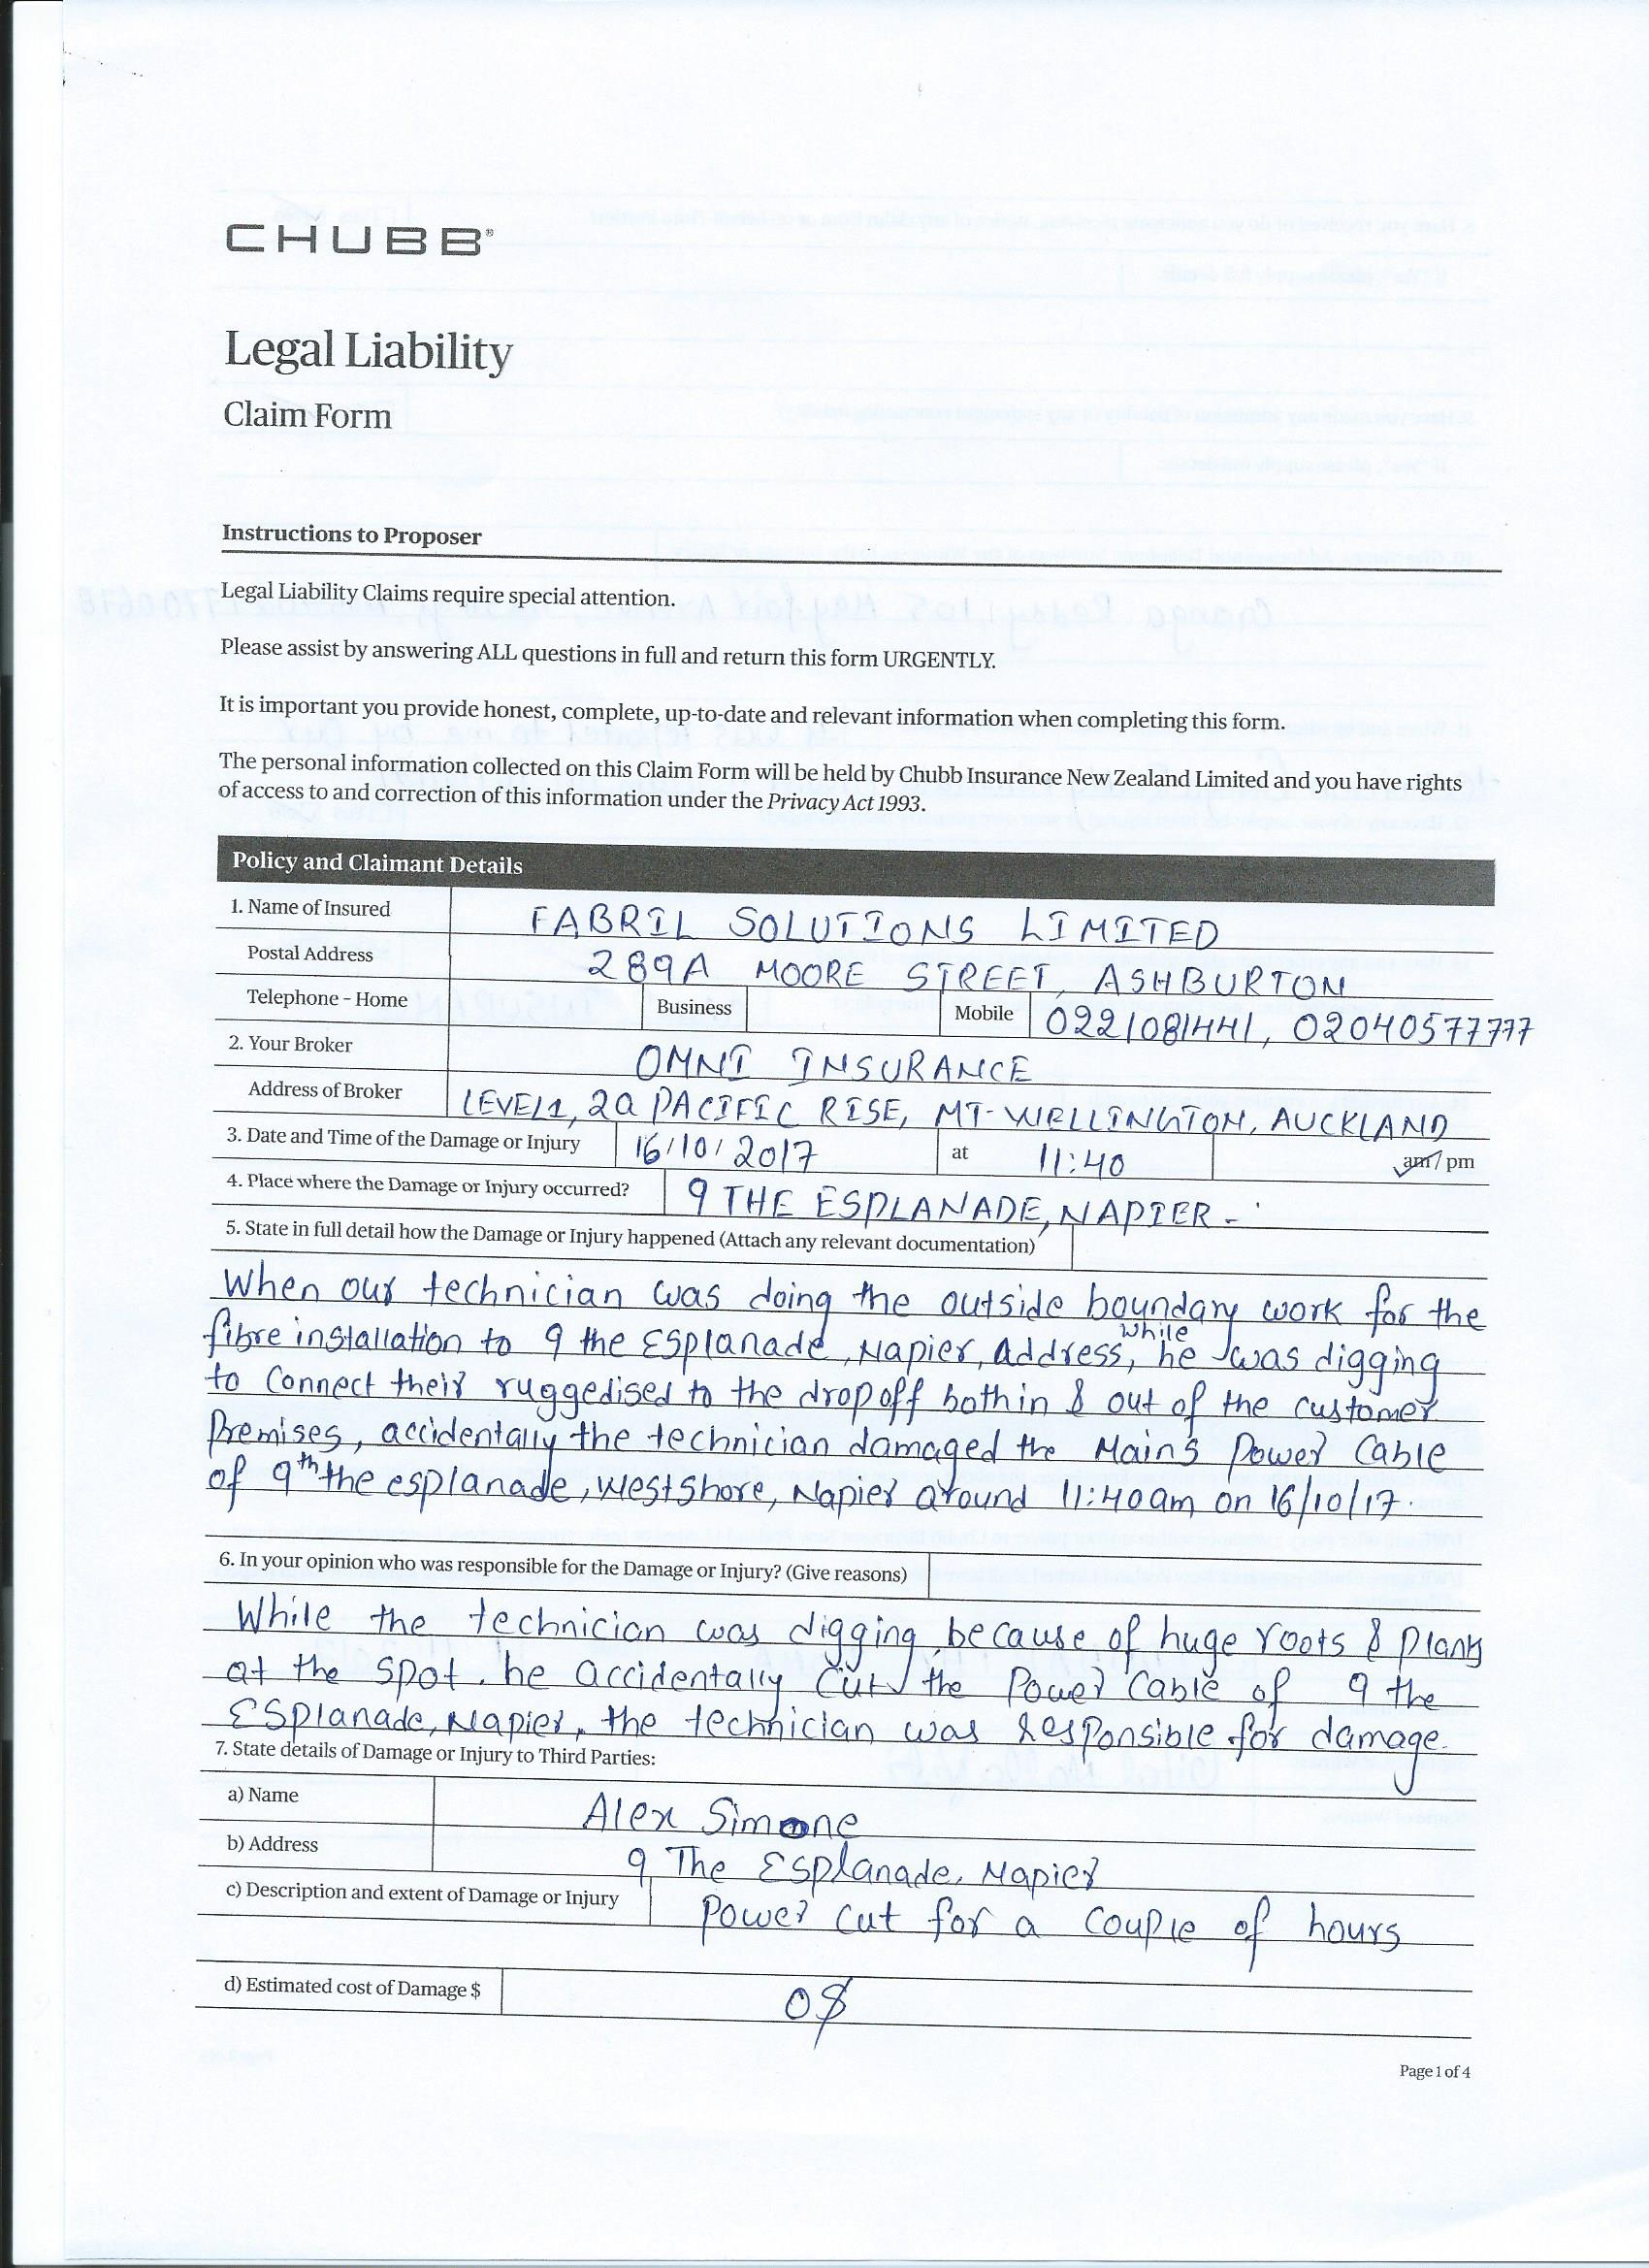 CHUBB®
Legal Liability
Claim Form
Instructions to Proposer
Legal Liability Claims require special attention.
Please assist by answering ALL questions in full and return this form URGENTLY.
It is important you provide honest, complete, up-to-date and relevant information when completing this form.
The personal information collected on this Claim Form will be held by Chubb Insurance New Zealand Limited and you have rights
of access to and correction of this information under the Privacy Act 1993.
Policy and Claimant Details
1. Name of Insured FABRIL SOLUTIONS LIMITED
Postal Address 289A MOORE STREET, ASHBURTON
Telephone - Home Business Mobile 0221081441, 02040577777
2. Your Broker OMNI INSURANCE
Address of Broker LEVEL1, 2a PACIFIC RISE, MT-WELLINGTON, AUCKLAND
3. Date and Time of the Damage or Injury 16/10/2017 at 11:40 am / pm
4. Place where the Damage or Injury occurred? 9 THE ESPLANADE, NAPIER -
5. State in full detail how the Damage or Injury happened (Attach any relevant documentation)
When our technician was doing the outside boundary work for the
fibre installation to 9 the Esplanade, Napier, Address, he while was digging
to connect their ruggedised to the drop off both in & out of the customer
Premises, accidentally the technician damaged the Mains Power Cable
of 9th the esplanade, Westshore, Napier around 11:40am on 16/10/17.
6. In your opinion who was responsible for the Damage or Injury? (Give reasons)
While the technician was digging, because of huge roots & plants
at the spot. he accidentally cut the Power Cable of 9 the
Esplanade, Napier. the technician was responsible for damage.
7. State details of Damage or Injury to Third Parties:
a) Name Alex Simone
b) Address 9 The Esplanade, Napier
c) Description and extent of Damage or Injury Power cut for a couple of hours
d) Estimated cost of Damage $ 0$
Page 1 of 4